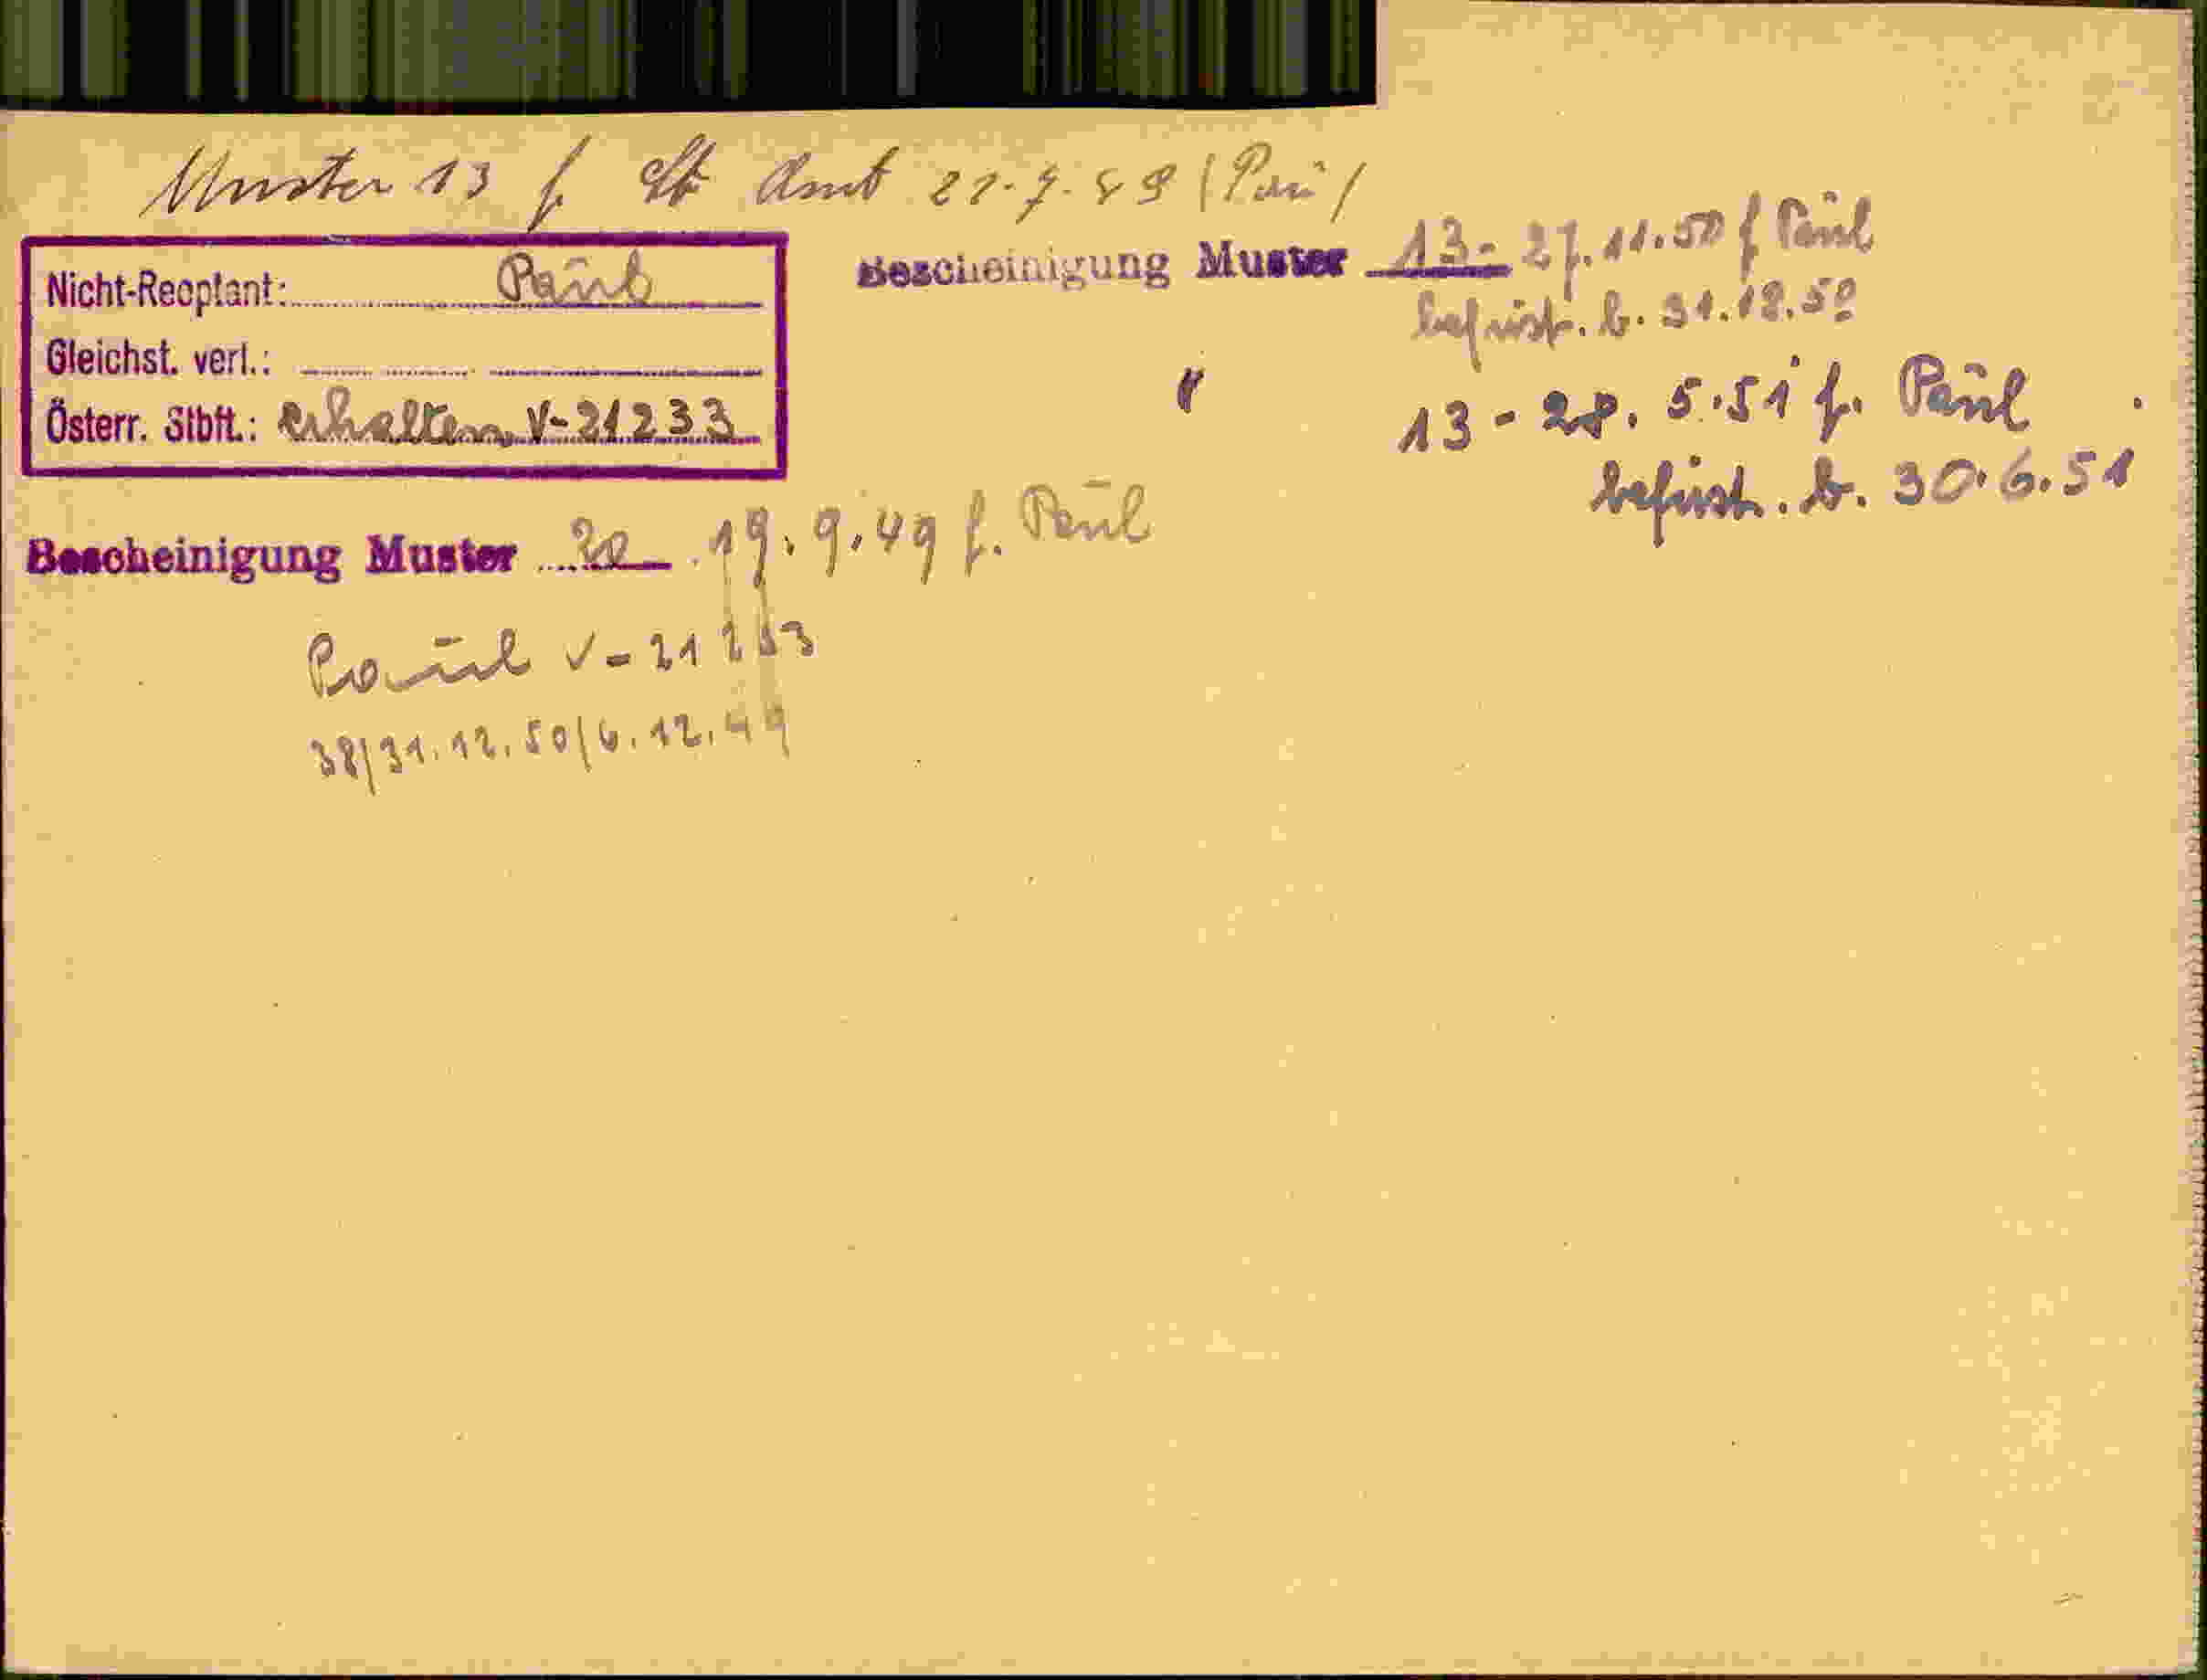 Muster 13 f. St Amt 22.7.49 (Pau)
Nicht-Reoptant: Paul
Gleichst. verl.:
Österr. Stbft.: erhalten V-21233
Bescheinigung Muster 13- 27.11.50 f Paul
befrist. b. 31.12.50
" 13 - 28. 5.51 f. Paul
befrist. b. 30.6.51
Bescheinigung Muster 20 19.9.49 f. Paul
Paul V-21233
38/31.12.50/6.12.49